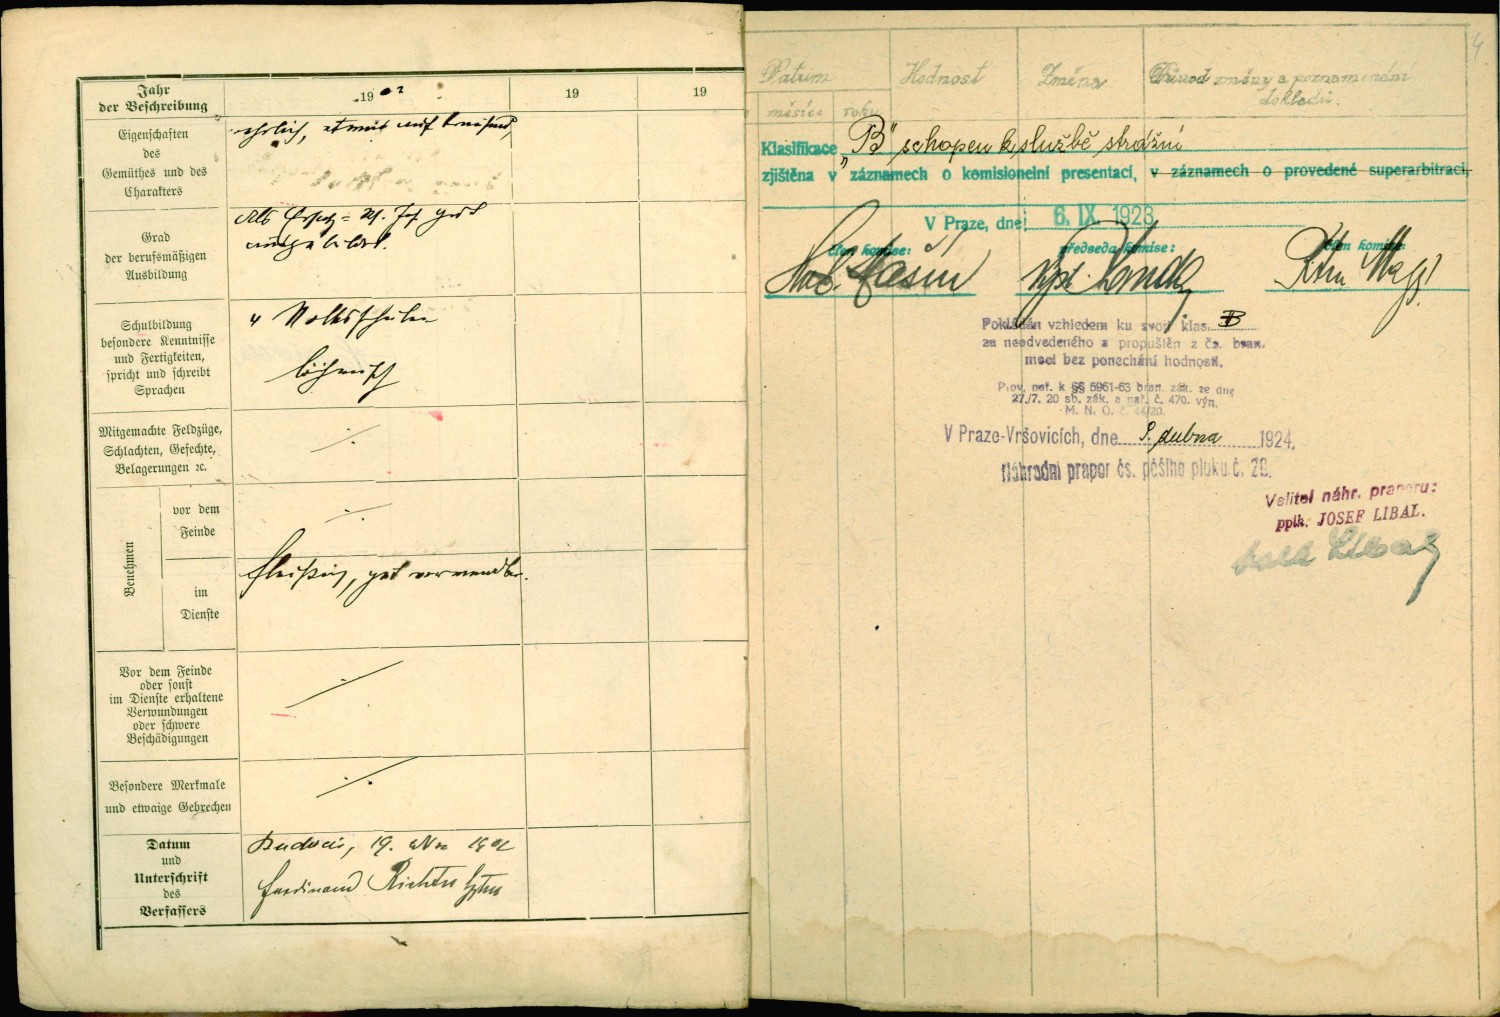 Jahr
der Beschreibung
19 02
19
19
Eigenschaften
des
Gemüthes und des
Charakters
ehrlich, etwas auf
Grad
der berufsmäßigen
Ausbildung
Als Ersatz= Rs. Inf. gut
ausgebildet.
Schulbildung
besondere Kenntnisse
und Fertigkeiten,
spricht und schreibt
Sprachen
4 Volksschulen
böhmisch
Mitgemachte Feldzüge,
Schlachten, Gefechte,
Belagerungen ꝛc.
Benehmen
vor dem
Feinde
im
Dienste
fleißig, gut verwendbar.
Vor dem Feinde
oder sonst
im Dienste erhaltene
Verwundungen
oder schwere
Beschädigungen
Besondere Merkmale
und etwaige Gebrechen
Datum
und
Unterschrift
des
Verfassers
Budweis, 19. Nov 1902
Ferdinand Richter Hptm
4
Datum
Hodnost
Změna
Důvod změny a poznamenání
dokladů.
měsíce
roku
Klasifikace „B" schopen k službě strážní
zjištěna v „záznamech o komisionelní presentaci, v záznamech o provedené superarbitraci,
V Praze, dne: 6. IX. 1923
člen komise:
předseda komise:
člen komise:
Pokládán vzhledem ku svojí klas. B
za neodvedeného a propuštěn z čs. bran.
moci bez ponechání hodnosti.
Prov. nař. k §§ 5961-63 bran. zák. ze dne
27./7. 20 sb. zák. a nař. č. 470. výn.
M. N. O. č. 44/20.
V Praze-Vršovicích, dne 9. dubna 1924.
Náhradní prapor čs. pěšího pluku č. 28.
Velitel náhr. praporu:
pplk. JOSEF LIBAL.